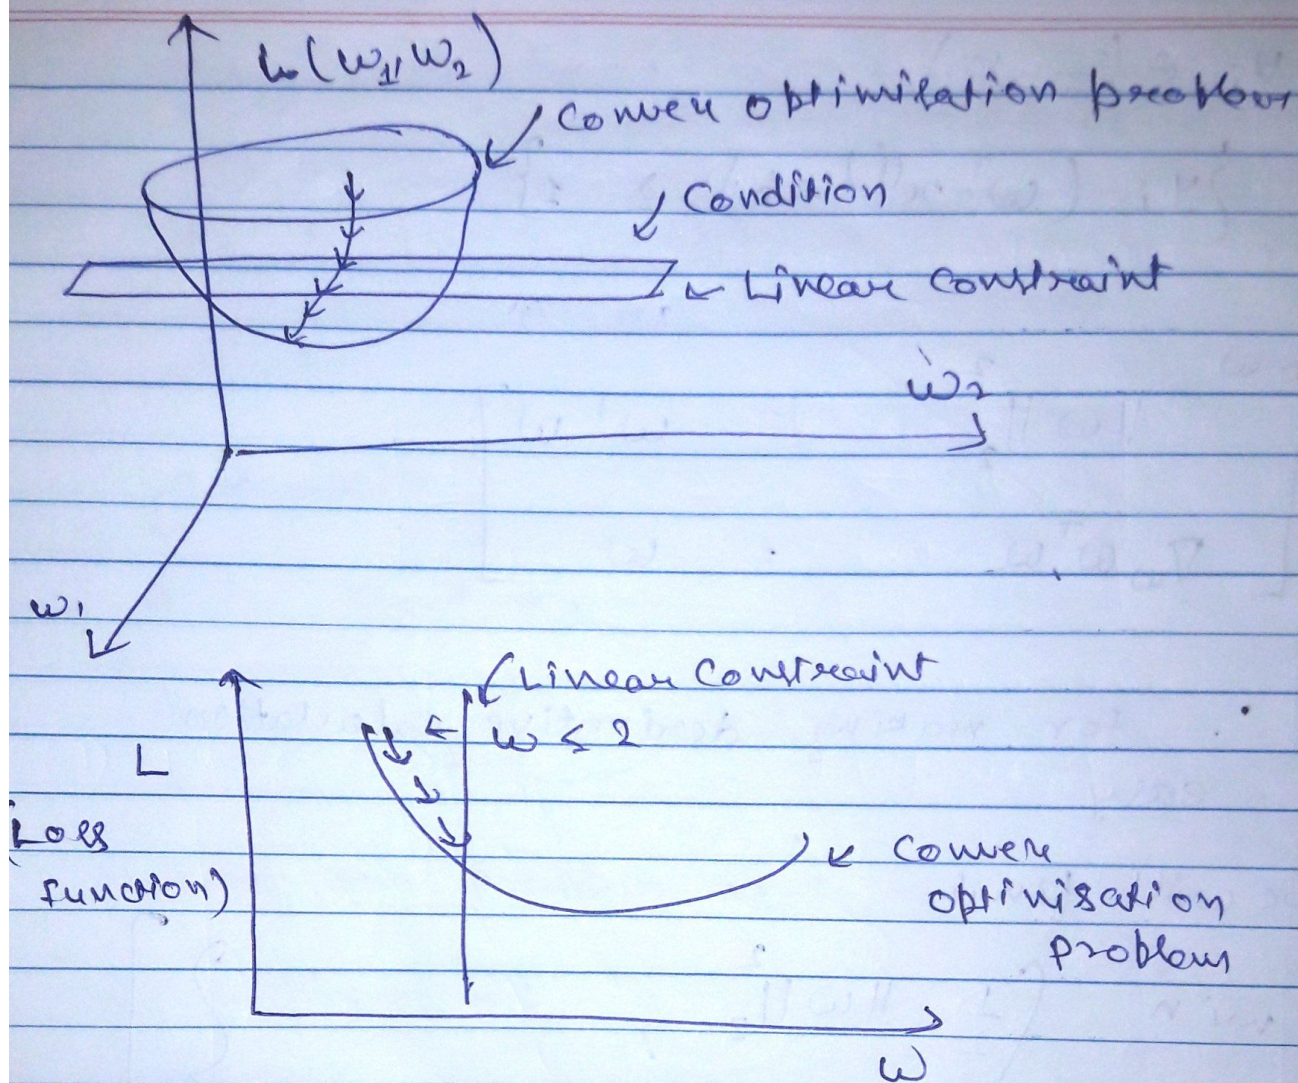 L(w1, w2)
Convex optimisation problem
Condition
Linear Constraint
w2
w1
Linear Constraint
w ≤ 2
L
(Loss
function)
Convex
optimisation
problem
w